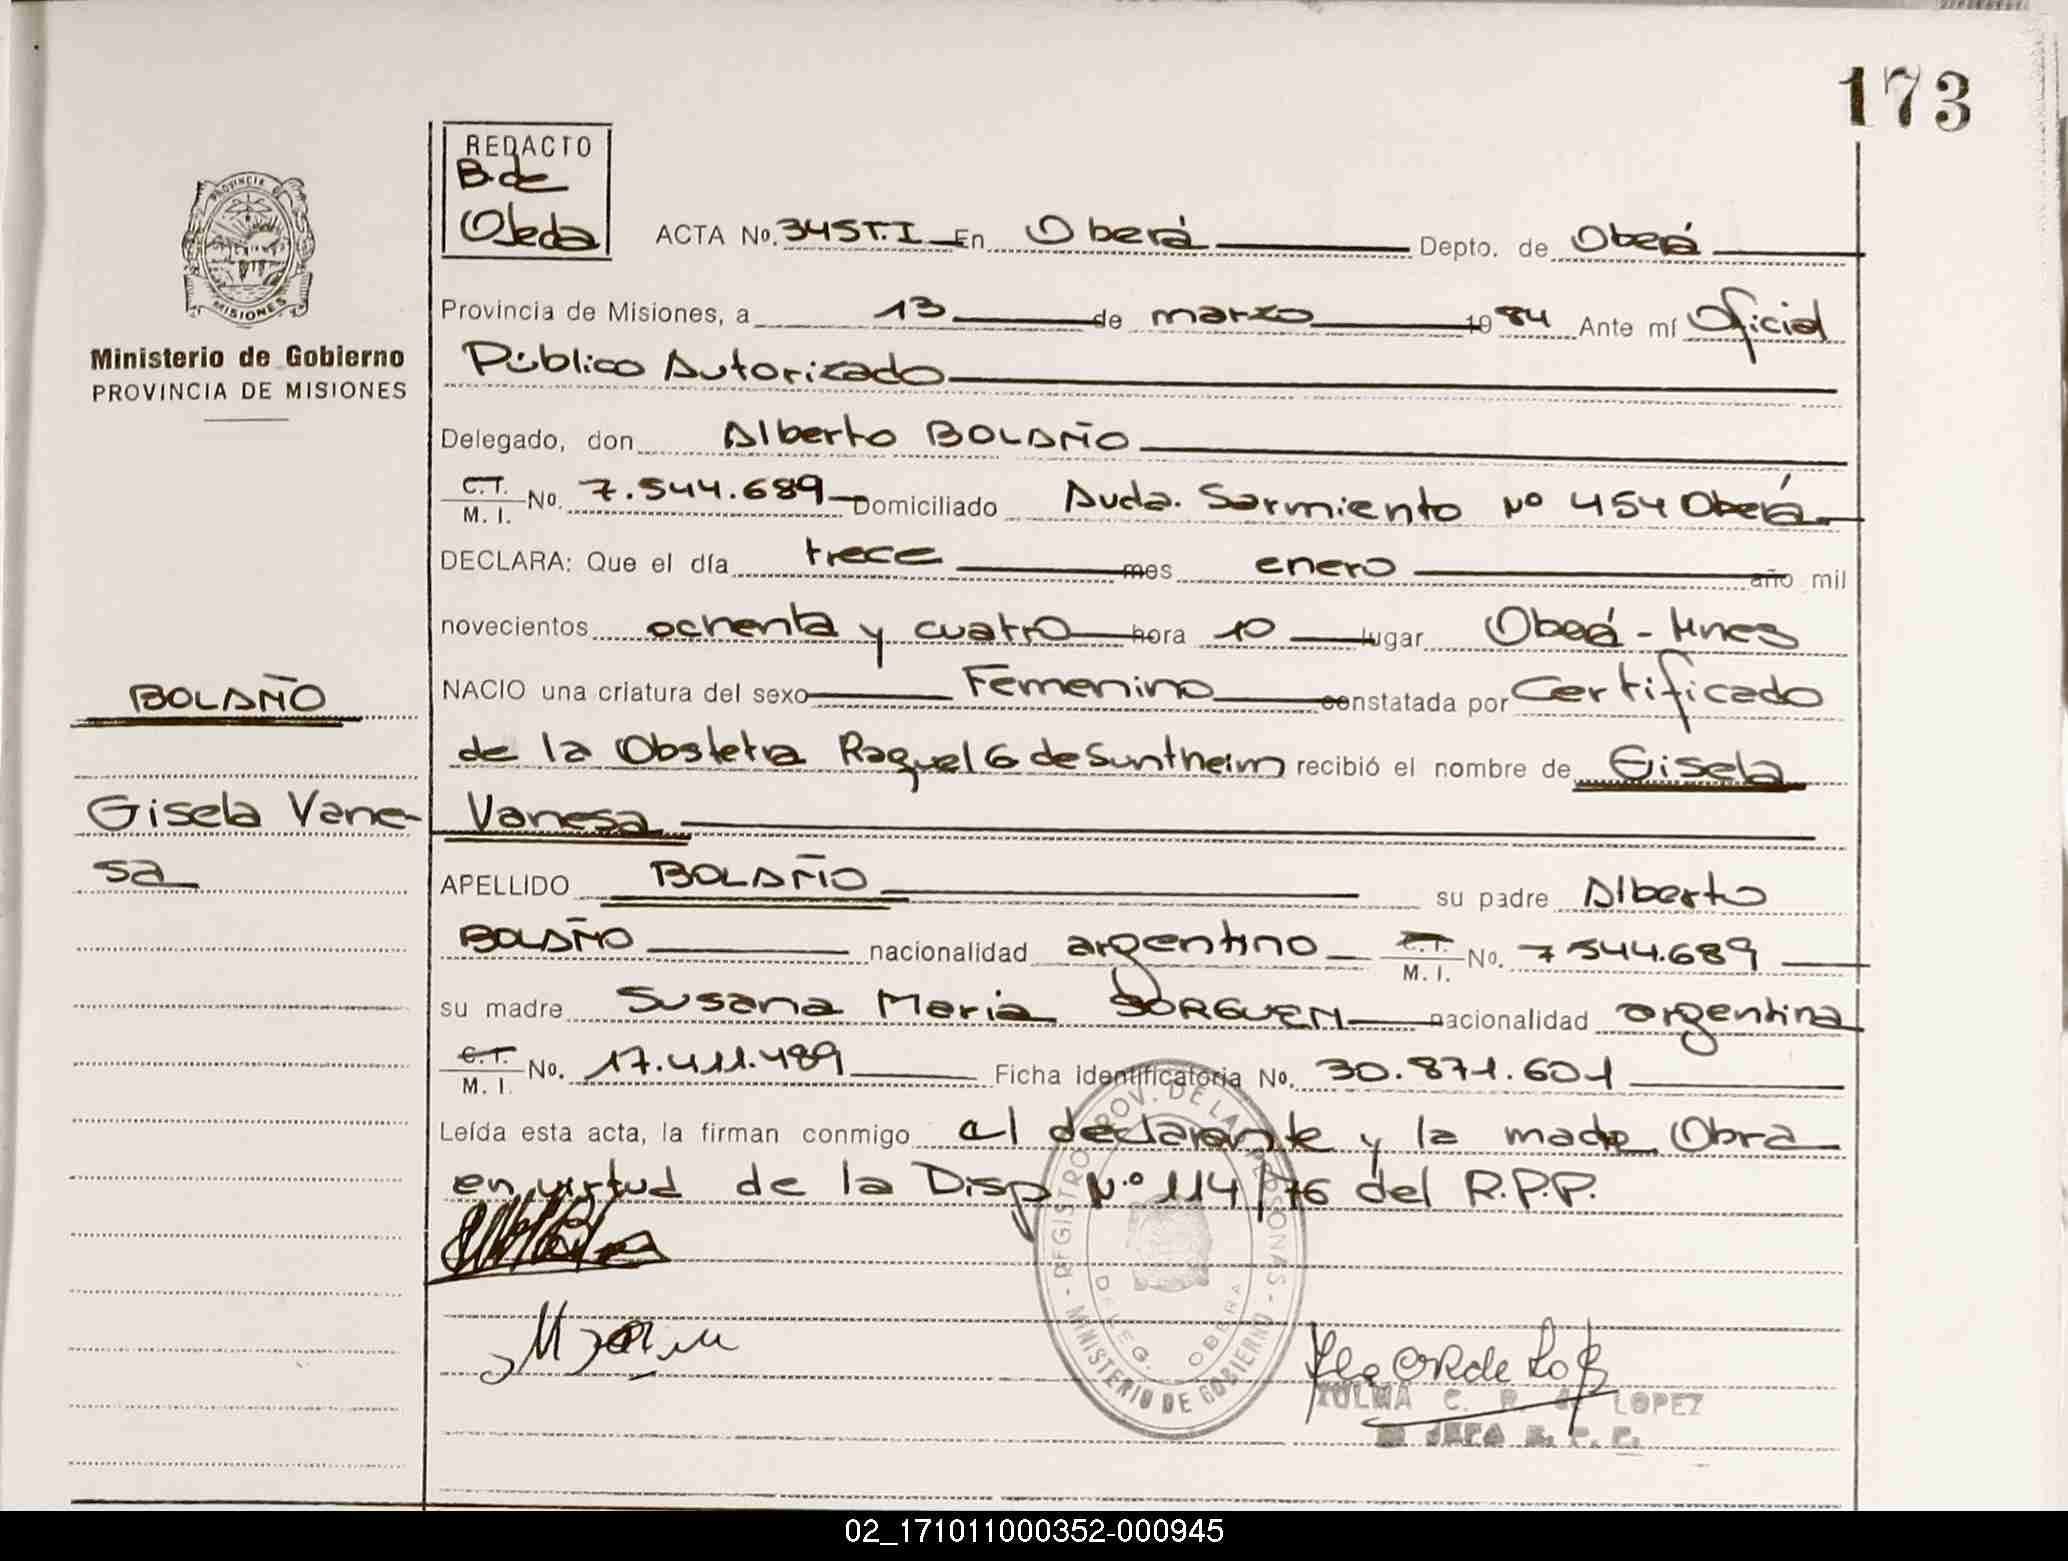 173
REDACTO
B. de
Ojeda
ACTA No. 345T.I En Oberá Depto. de Oberá
Provincia de Misiones, a 13 de marzo 19 84 Ante mí Oficial
Público Autorizado
Delegado, don Alberto BOLAÑO
C.T. M. I. No. 7.544.689 Domiciliado Avda. Sarmiento Nº 454 Oberá
DECLARA: Que el día trece mes enero año mil
novecientos ochenta y cuatro hora 10 lugar Oberá - Mnes
NACIO una criatura del sexo Femenino constatada por Certificado
de la Obstetra Raquel G de Suntheim recibió el nombre de Gisela
Vanesa
APELLIDO BOLAÑO su padre Alberto
BOLAÑO nacionalidad argentino C.T. M. I. No. 7 544.689
su madre Susana Maria DORGUEN nacionalidad argentina
C.T. M. I. No. 17.411.489 Ficha identificatoria No. 30.871.601
Leída esta acta, la firman conmigo el declarante y la madre Obra
en virtud de la Disp N.º 114/76 del R.P.P.
PROVINCIA DE
MISIONES
Ministerio de Gobierno
PROVINCIA DE MISIONES
BOLAÑO
Gisela Vane-
sa
REGISTRO PROV. DE LAS PERSONAS - MINISTERIO DE GOBIERNO -
DELEG. OBERA
ZULMA C. R. de LOPEZ
JEFA
02_171011000352-000945